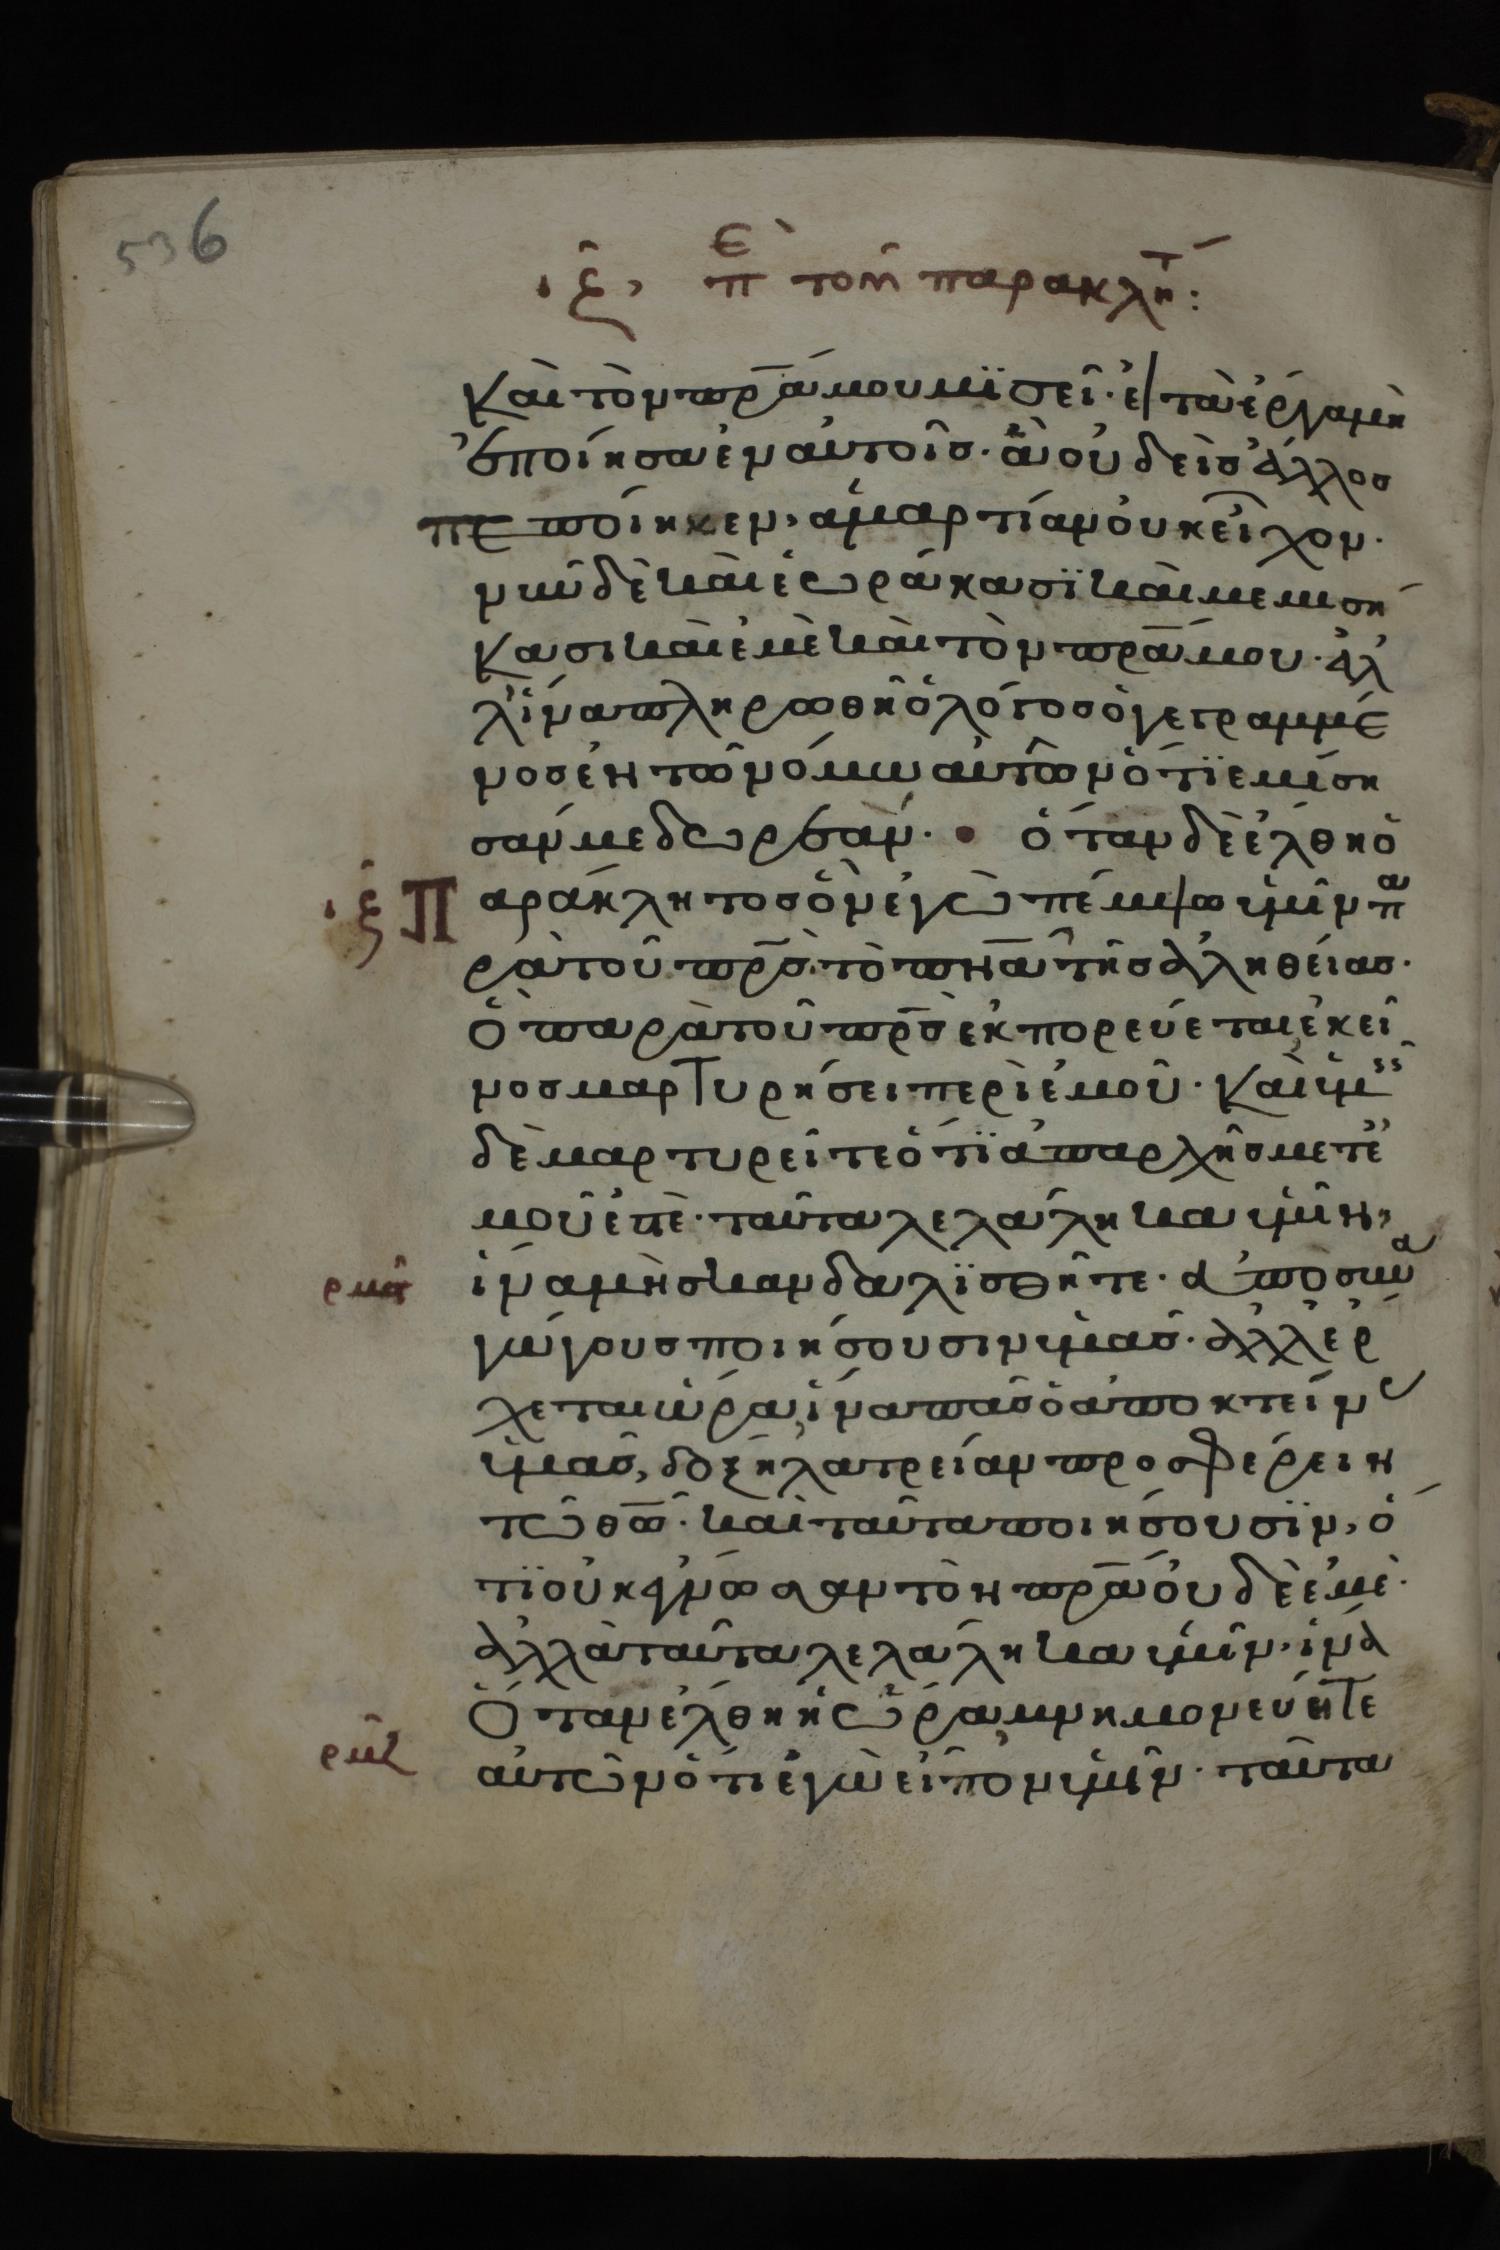 536
ιϛ, πε τοῦ παρακλητ:
καὶ τὸν πρ̅α μου μϊσεῖ· εἰ τὰ ἔργα μὴ
ἐποίησα ἐν αὐτοῖσ· ἃ οὐδεὶσ ἄλλοσ
πεποίηκεν, ἁμαρτίαν οὐκ εἶχον·
νῦν δὲ καὶ ἑωράκασϊ καὶ μεμιση
κασι καὶ ἐμὲ καὶ τὸν πρ̅α μου· ἀλ
λ' ἵνα πληρωθῆ ὁ λόγοσ ὁ γεγραμμέ
νοσ ἐν τῶ νόμω αὐτῶν ὅτϊ εμίση
σάν με δωρεάν· ὅταν δὲ ἔλθη ὁ
ιϛ Παράκλητοσ ὃν ἐγὼ πέμψω ὑμῖν πα
ρὰ τοῦ πρ̅σ· τὸ πν̅α τῆσ ἀληθείασ·
ὃ παρὰ τοῦ πρ̅σ ἐκπορεύεται, ἐκεῖ
νοσ μαρτυρήσει περὶ ἐμοῦ· καὶ ὑμεῖς
δὲ μαρτυρεῖτε ὅτϊ ἀπαρχῆσ μετ' ἐ
μοῦ ἐστὲ· ταῦτα λελάληκα ὑμῖν,
ρμα ἵνα μὴ σκανδαλϊσθῆτε· ἀποσυνα
γώγουσ ποιήσουσιν ὑμᾶσ· ἀλλ' ἔρ
χεται ὥρα, ἵνα πᾶσ ὁ ἀποκτείνας
ὑμᾶσ, δόξη λατρείαν προσφέρειν
τῶ θω̅· καὶ ταῦτα ποιήσουσϊν, ὅ
τϊ οὐκ ἔγνωσαν τὸν πρ̅α οὐδὲ ἐμὲ·
ἀλλὰ ταῦτα λελάληκα ὑμῖν, ἵνα
ὅταν ἔλθη ἡ ὥρα μνημονεύητε
ρμζ αὐτῶν ὅτι ἐγὼ εἶπον ὑμῖν· ταῦτα